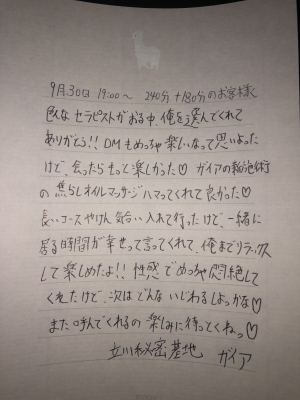 9月30日 19:00～ 240分+180分のお客様
色んなセラピストがおる中、俺を選んでくれて
ありがとう!! DMもめっちゃ楽しいなって思いよった
けど、会ったらもっと楽しかった♡ ガイアの鍋池術
の焦らしオイルマッサージハマってくれて良かった♡
長いコースやけん気合い入れて行ったけど、一緒に
居る時間が幸せって言ってくれて、俺までリラックス
して楽しめたよ!! 性感でめっちゃ悶絶して
くれたけど、次はどんないじわるしよっかな♡
また呼んでくれるの楽しみに待ってくねっ♡
立川秘密基地 ガイア